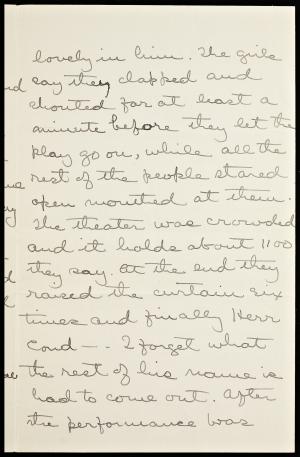 lovely in him. The girls
say they clapped and
shouted for at least a
minute before they let the
play go on, while all the
rest of the people stared
open mouthed at them.
The theater was crowded
and it holds about 1100
they say. At the end they
raised the curtain six
times and finally Herr
Cond—- I forget what
the rest of his name is
had to come out. After
the performance was